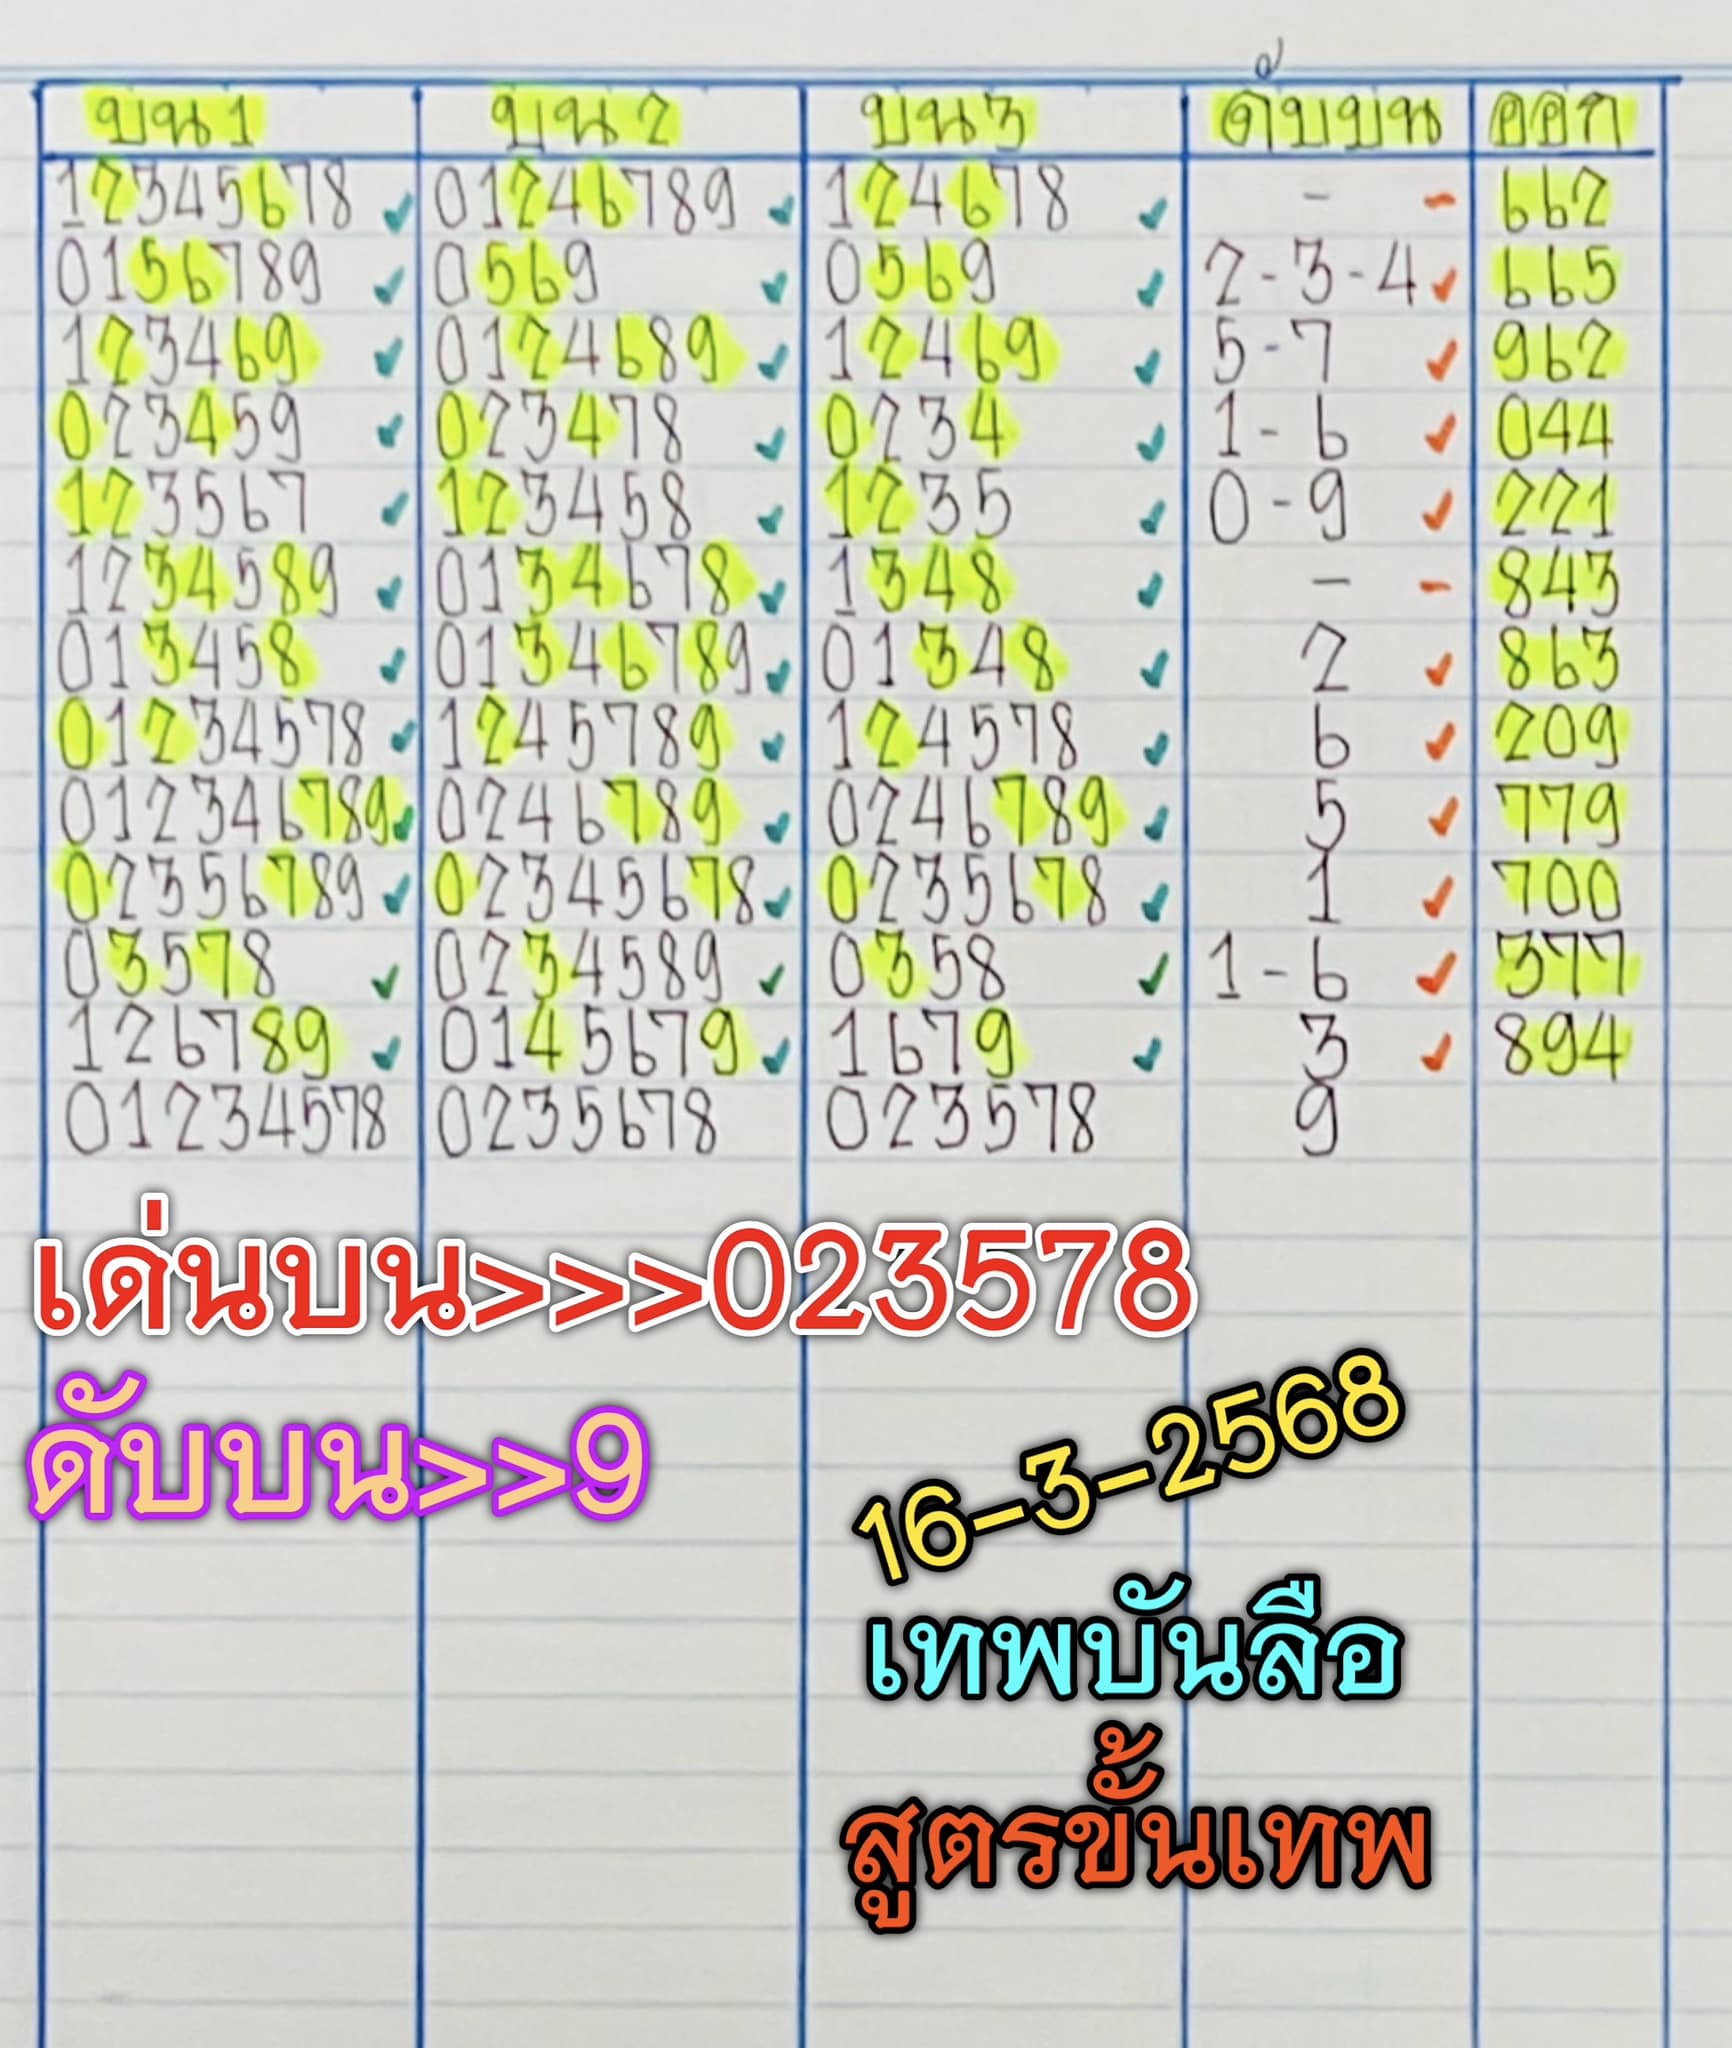 บน1 บน2 บน3 ดับบน ออก
12345678 01246789 124678 - - 662
0156789 0569 0569 2-3-4 665
123469 0124689 12469 5-7 962
023459 023478 0234 1-6 044
123567 123458 1235 0-9 221
1234589 0134678 1348 - - 843
013458 01346789 01348 2 863
01234578 1245789 124578 6 209
012346789 0246789 0246789 5 779
02356789 02345678 0235678 1 700
03578 0234589 0358 1-6 377
126789 0145679 1679 3 894
01234578 0235678 023578 9
เด่นบน>>>023578
ดับบน>>9
16-3-2568
เทพบันลือ
สูตรขั้นเทพ